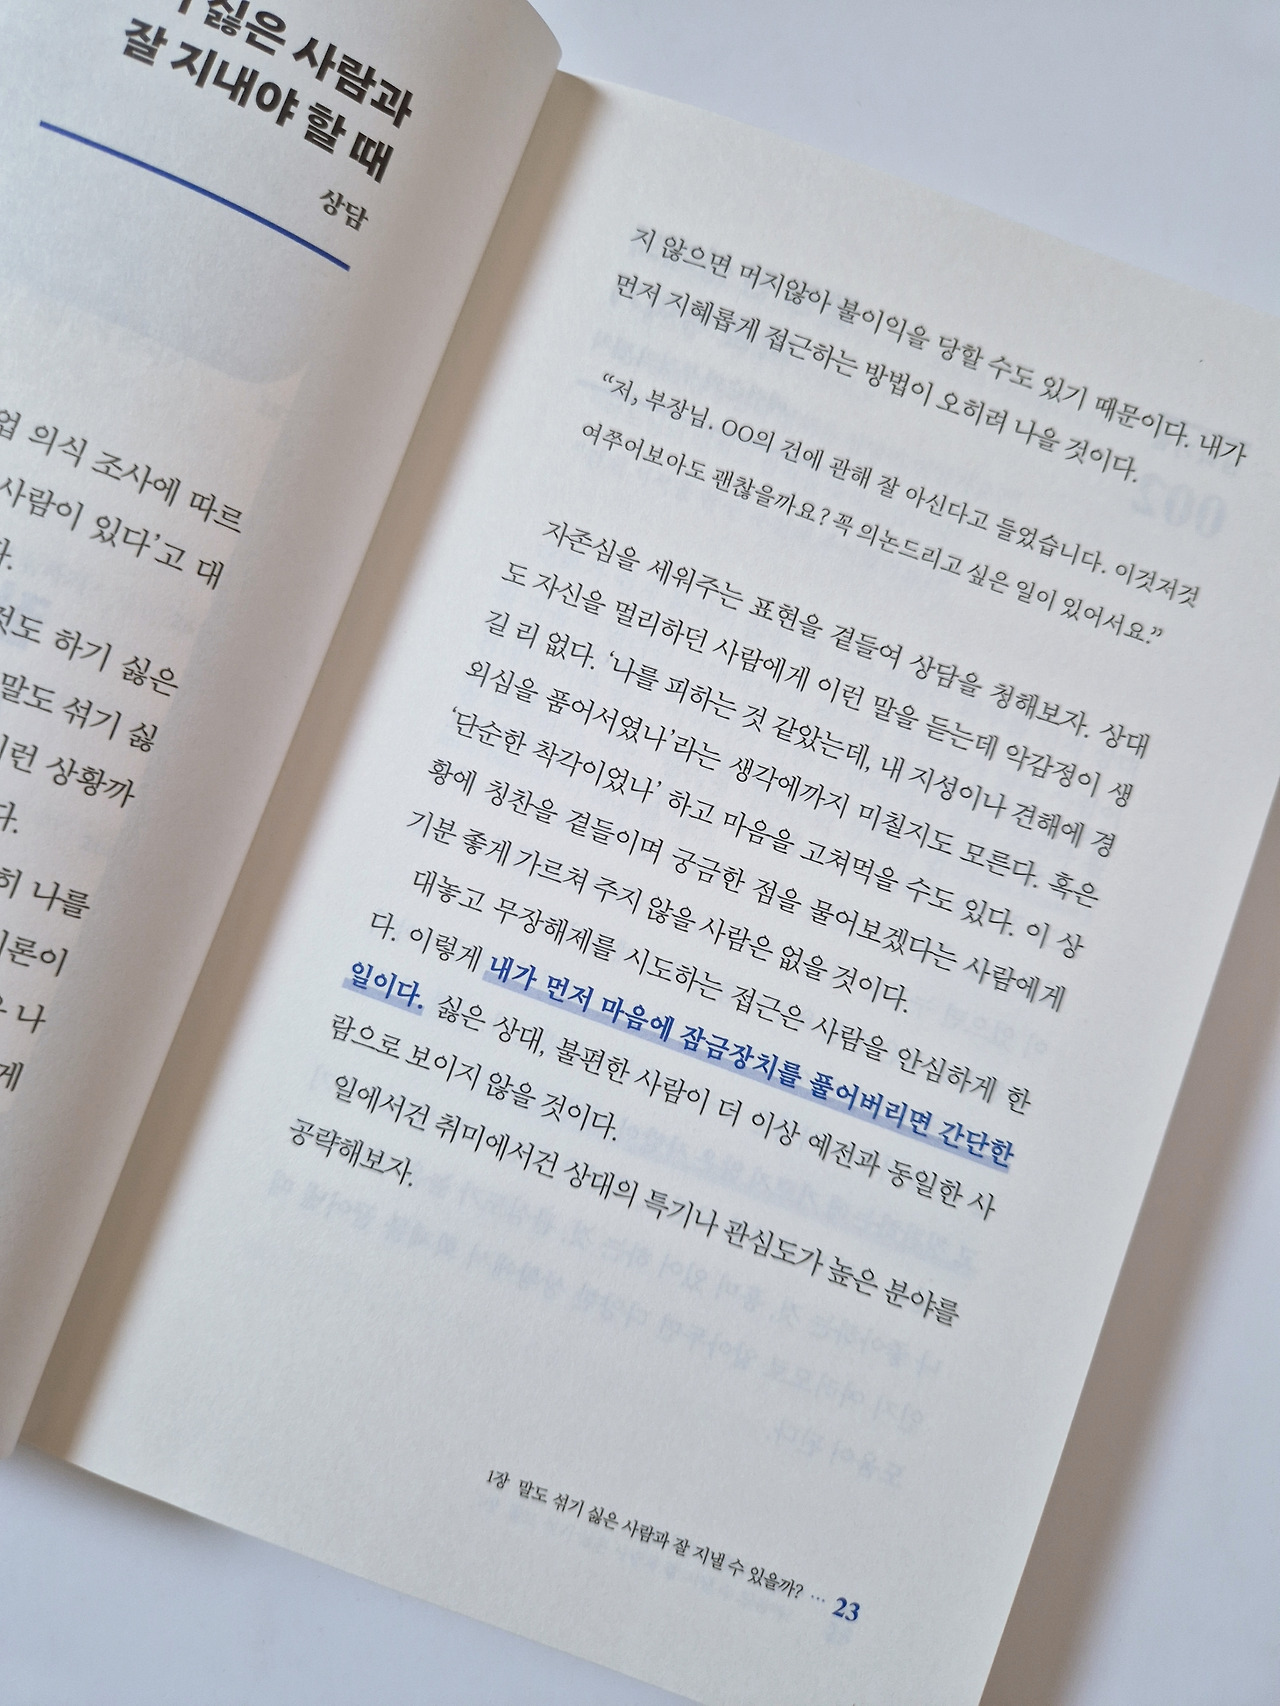 싫은 사람과
잘 지내야 할 때
상담
업 의식 조사에 따르
사람이 있다’고 대
다.
것도 하기 싫은
말도 섞기 싫
이런 상황까
다.
히 나를
이론이
나
게
지 않으면 머지않아 불이익을 당할 수도 있기 때문이다. 내가
먼저 지혜롭게 접근하는 방법이 오히려 나을 것이다.
“저, 부장님. OO의 건에 관해 잘 아신다고 들었습니다. 이것저것
여쭈어보아도 괜찮을까요? 꼭 의논드리고 싶은 일이 있어서요.”
자존심을 세워주는 표현을 곁들여 상담을 청해보자. 상대
도 자신을 멀리하던 사람에게 이런 말을 듣는데 악감정이 생
길 리 없다. ‘나를 피하는 것 같았는데, 내 지성이나 견해에 경
외심을 품어서였나’라는 생각에까지 미칠지도 모른다. 혹은
‘단순한 착각이었나’ 하고 마음을 고쳐먹을 수도 있다. 이 상
황에 칭찬을 곁들이며 궁금한 점을 물어보겠다는 사람에게
기분 좋게 가르쳐 주지 않을 사람은 없을 것이다.
대놓고 무장해제를 시도하는 접근은 사람을 안심하게 한
다. 이렇게 내가 먼저 마음에 잠금장치를 풀어버리면 간단한
일이다. 싫은 상대, 불편한 사람이 더 이상 예전과 동일한 사
람으로 보이지 않을 것이다.
일에서건 취미에서건 상대의 특기나 관심도가 높은 분야를
공략해보자.
1장 말도 섞기 싫은 사람과 잘 지낼 수 있을까? … 23